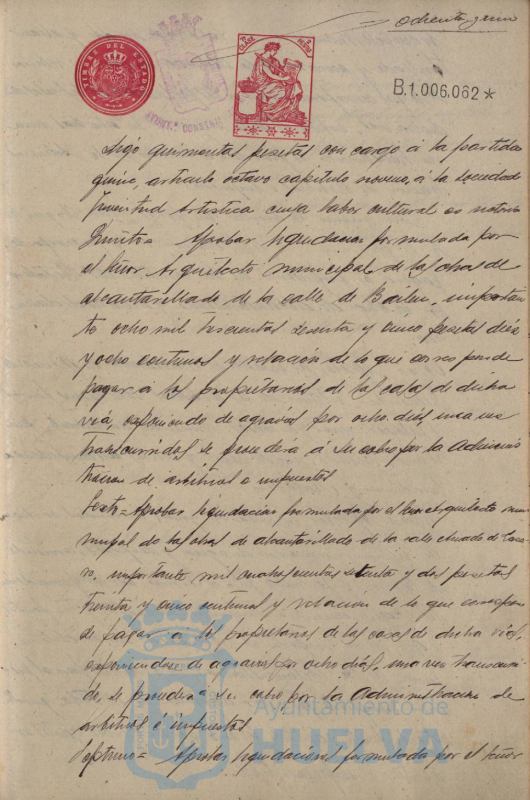 ochenta y cinco
TIMBRE DEL ESTADO
B.1.006.062*
digo quinientas pesetas con cargo á la partida
quinc, artículo octavo capítulo noveno, á la sociedad
Juventud Artistica cuya labor cultural es notoria
Quinto= Aprobar liquidacion formulada por
el Señor Arquitecto municipal de las obras de
alcantarillado de la calle de Bailen, importan
te ocho mil trescientas sesenta y cinco pesetas diez
y ocho centimos y relación de lo que corresponde
pagar á los propietarios de las casas de dicha
via, exponiendo de agravios por ocho dias, una vez
transcurridos se procederá á su cobro por la Adminis
tracion de arbitrios e impuestos
Sexto= Aprobar liquidacion formulada por el Señor Arquitecto mu
nicipal de las obras de alcantarillado de la calle
ro, importante mil cuatrocientas setenta y dos pesetas
treinta y cinco centimos y relación de lo que correspon
de pagar á los propietarios de las casas de dicha via,
exponiendose de agravios por ocho dias, una vez transcurri
do, se procederá su cobro por la Administracion de
arbitrios é impuestos
Septimo= Aprobar liquidacion formulada por el Señor
Ayuntamiento de
HUELVA